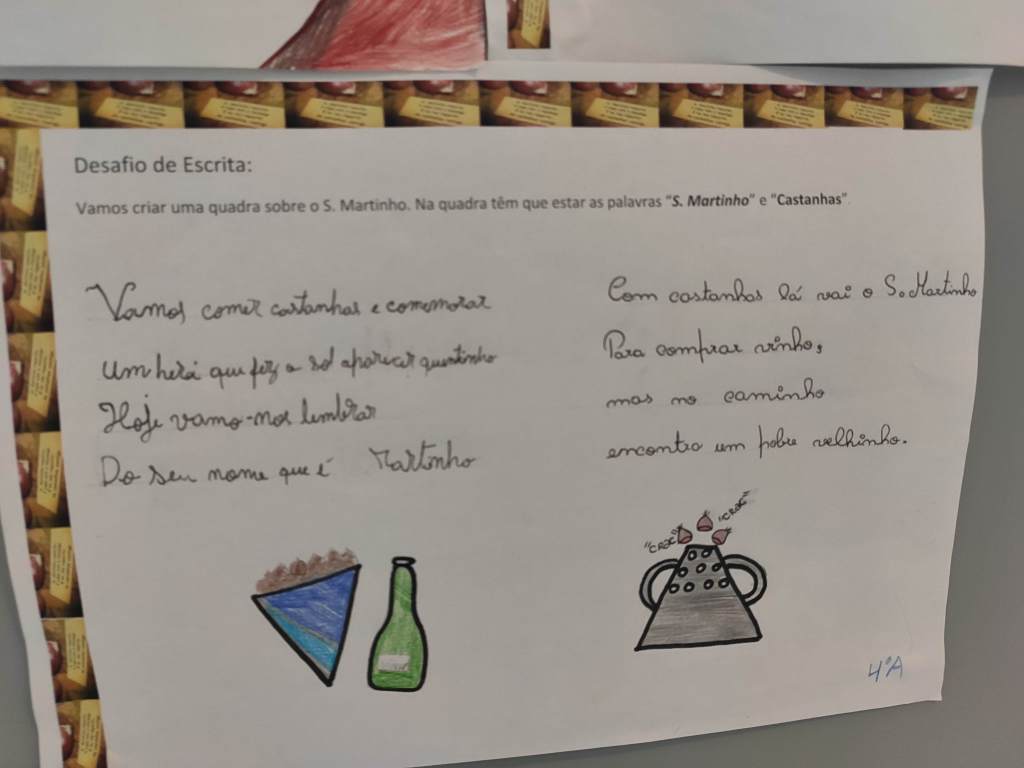 Desafio de Escrita:
Vamos criar uma quadra sobre o S. Martinho. Na quadra têm que estar as palavras "S. Martinho" e "Castanhas".
Vamos comer castanhas e comemorar
Um herói que fez o sol aparecer quentinho
Hoje vamo-nos lembrar
Do seu nome que é Martinho
Com castanhas lá vai o S. Martinho
Para comprar vinho,
mas no caminho
encontro um pobre velhinho.
"CROC"
"CROC"
4ºA